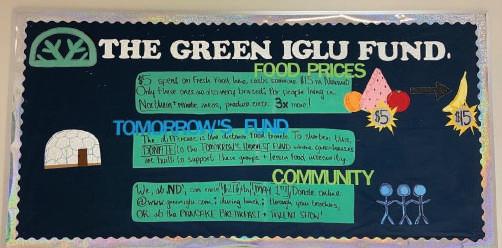 THE GREEN IGLU FUND.
FOOD PRICES
$5 spent on fresh food here, costs someone $15 in Nunavut
Only these ones are for people living in
Northern + remote areas, produce costs 3x more!
$5
$15
TOMORROW'S FUND
The difference is the distance food travels. To shorten this,
DONATE to the TOMORROW'S FUND where greenhouses
are built to support these groups + lessen food insecurity.
COMMUNITY
We, at ND, can raise by May Donate online
@www.greeniglu.com; during lunch; through your teachers,
OR at the PANCAKE BREAKFAST + TALENT SHOW!